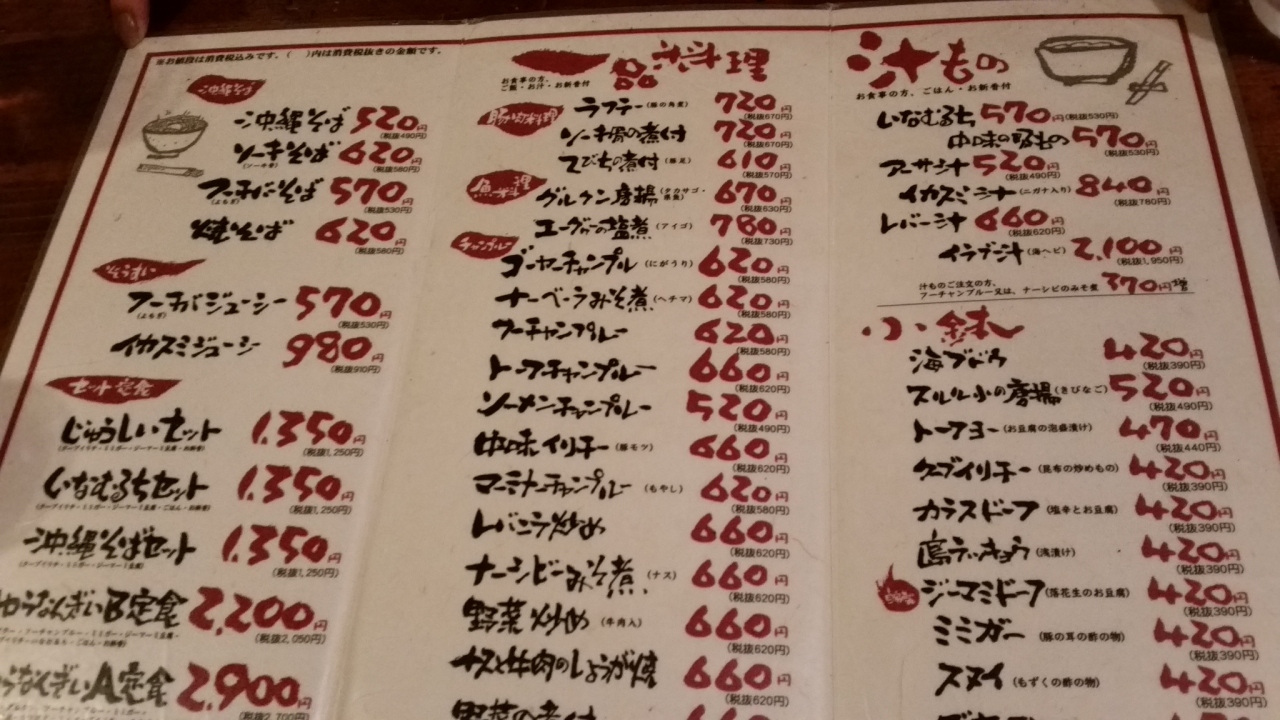 ※お値段は消費税込みです。(　)内は消費税抜きの金額です。
沖縄そば
沖縄そば 520円
(税抜490円)
ソーキそば 620円
(税抜580円)
フーチバそば 570円
(よもぎ) (税抜530円)
焼そば 620円
(税抜580円)
ぞうすい
フーチバジューシー 570円
(よもぎ) (税抜530円)
イカスミジューシー 980円
(税抜910円)
セット定食
じゅうしいセット 1,350円
(税抜1,250円)
いなむるちセット 1,350円
(税抜1,250円)
沖縄そばセット 1,350円
(税抜1,250円)
うなんぎいB定食 2,200円
(税抜2,050円)
うなんぎいA定食 2,900円
(税抜2,700円)
一品料理
お食事の方、
ご飯・お汁・お新香付
豚肉料理
ラフテー (豚の角煮) 720円
(税抜670円)
ソーキ骨の煮付 720円
(税抜670円)
てびちの煮付 (豚足) 610円
(税抜570円)
魚料理
グルクン唐揚 (タカサゴ・県魚) 670円
(税抜630円)
エーグヮーの塩煮 (アイゴ) 780円
(税抜730円)
チャンプルー
ゴーヤーチャンプル (にがうり) 620円
(税抜580円)
ナーベーラみそ煮 (ヘチマ) 620円
(税抜580円)
フーチャンプルー 620円
(税抜580円)
トーフチャンプルー 660円
(税抜620円)
ソーメンチャンプルー 520円
(税抜490円)
中味イリチー (豚モツ) 660円
(税抜620円)
マーミナーチャンプルー (もやし) 620円
(税抜580円)
レバニラ炒め 660円
(税抜620円)
ナーシビーみそ煮 (ナス) 660円
(税抜620円)
野菜炒め (牛肉入) 660円
(税抜620円)
ナスと牛肉のしょうが焼 660円
(税抜620円)
野菜の煮付
汁もの
お食事の方、ごはん・お新香付
いなむるち 570円 (税抜530円)
中味の吸もの 570円
(税抜530円)
アーサ汁 520円
(税抜490円)
イカスミ汁 (ニガナ入り) 840円
(税抜780円)
レバー汁 660円
(税抜620円)
イラブー汁 (海ヘビ) 2,100円
(税抜1,950円)
汁ものご注文の方、
フーチャンプルー又は、ナーシビのみそ煮 370円増
小鉢
海ブドウ 420円
(税抜390円)
スルル小の唐揚 (きびなご) 520円
(税抜490円)
トーフヨー (お豆腐の泡盛漬け) 470円
(税抜440円)
クーブイリチー (昆布の炒めもの) 420円
(税抜390円)
カラスドーフ (塩辛とお豆腐) 420円
(税抜390円)
島ラッキョウ (浅漬け) 420円
(税抜390円)
ジーマミドーフ (落花生のお豆腐) 420円
(税抜390円)
ミミガー (豚の耳の酢の物) 420円
(税抜390円)
スヌイ (もずくの酢の物) 420円
(税抜390円)